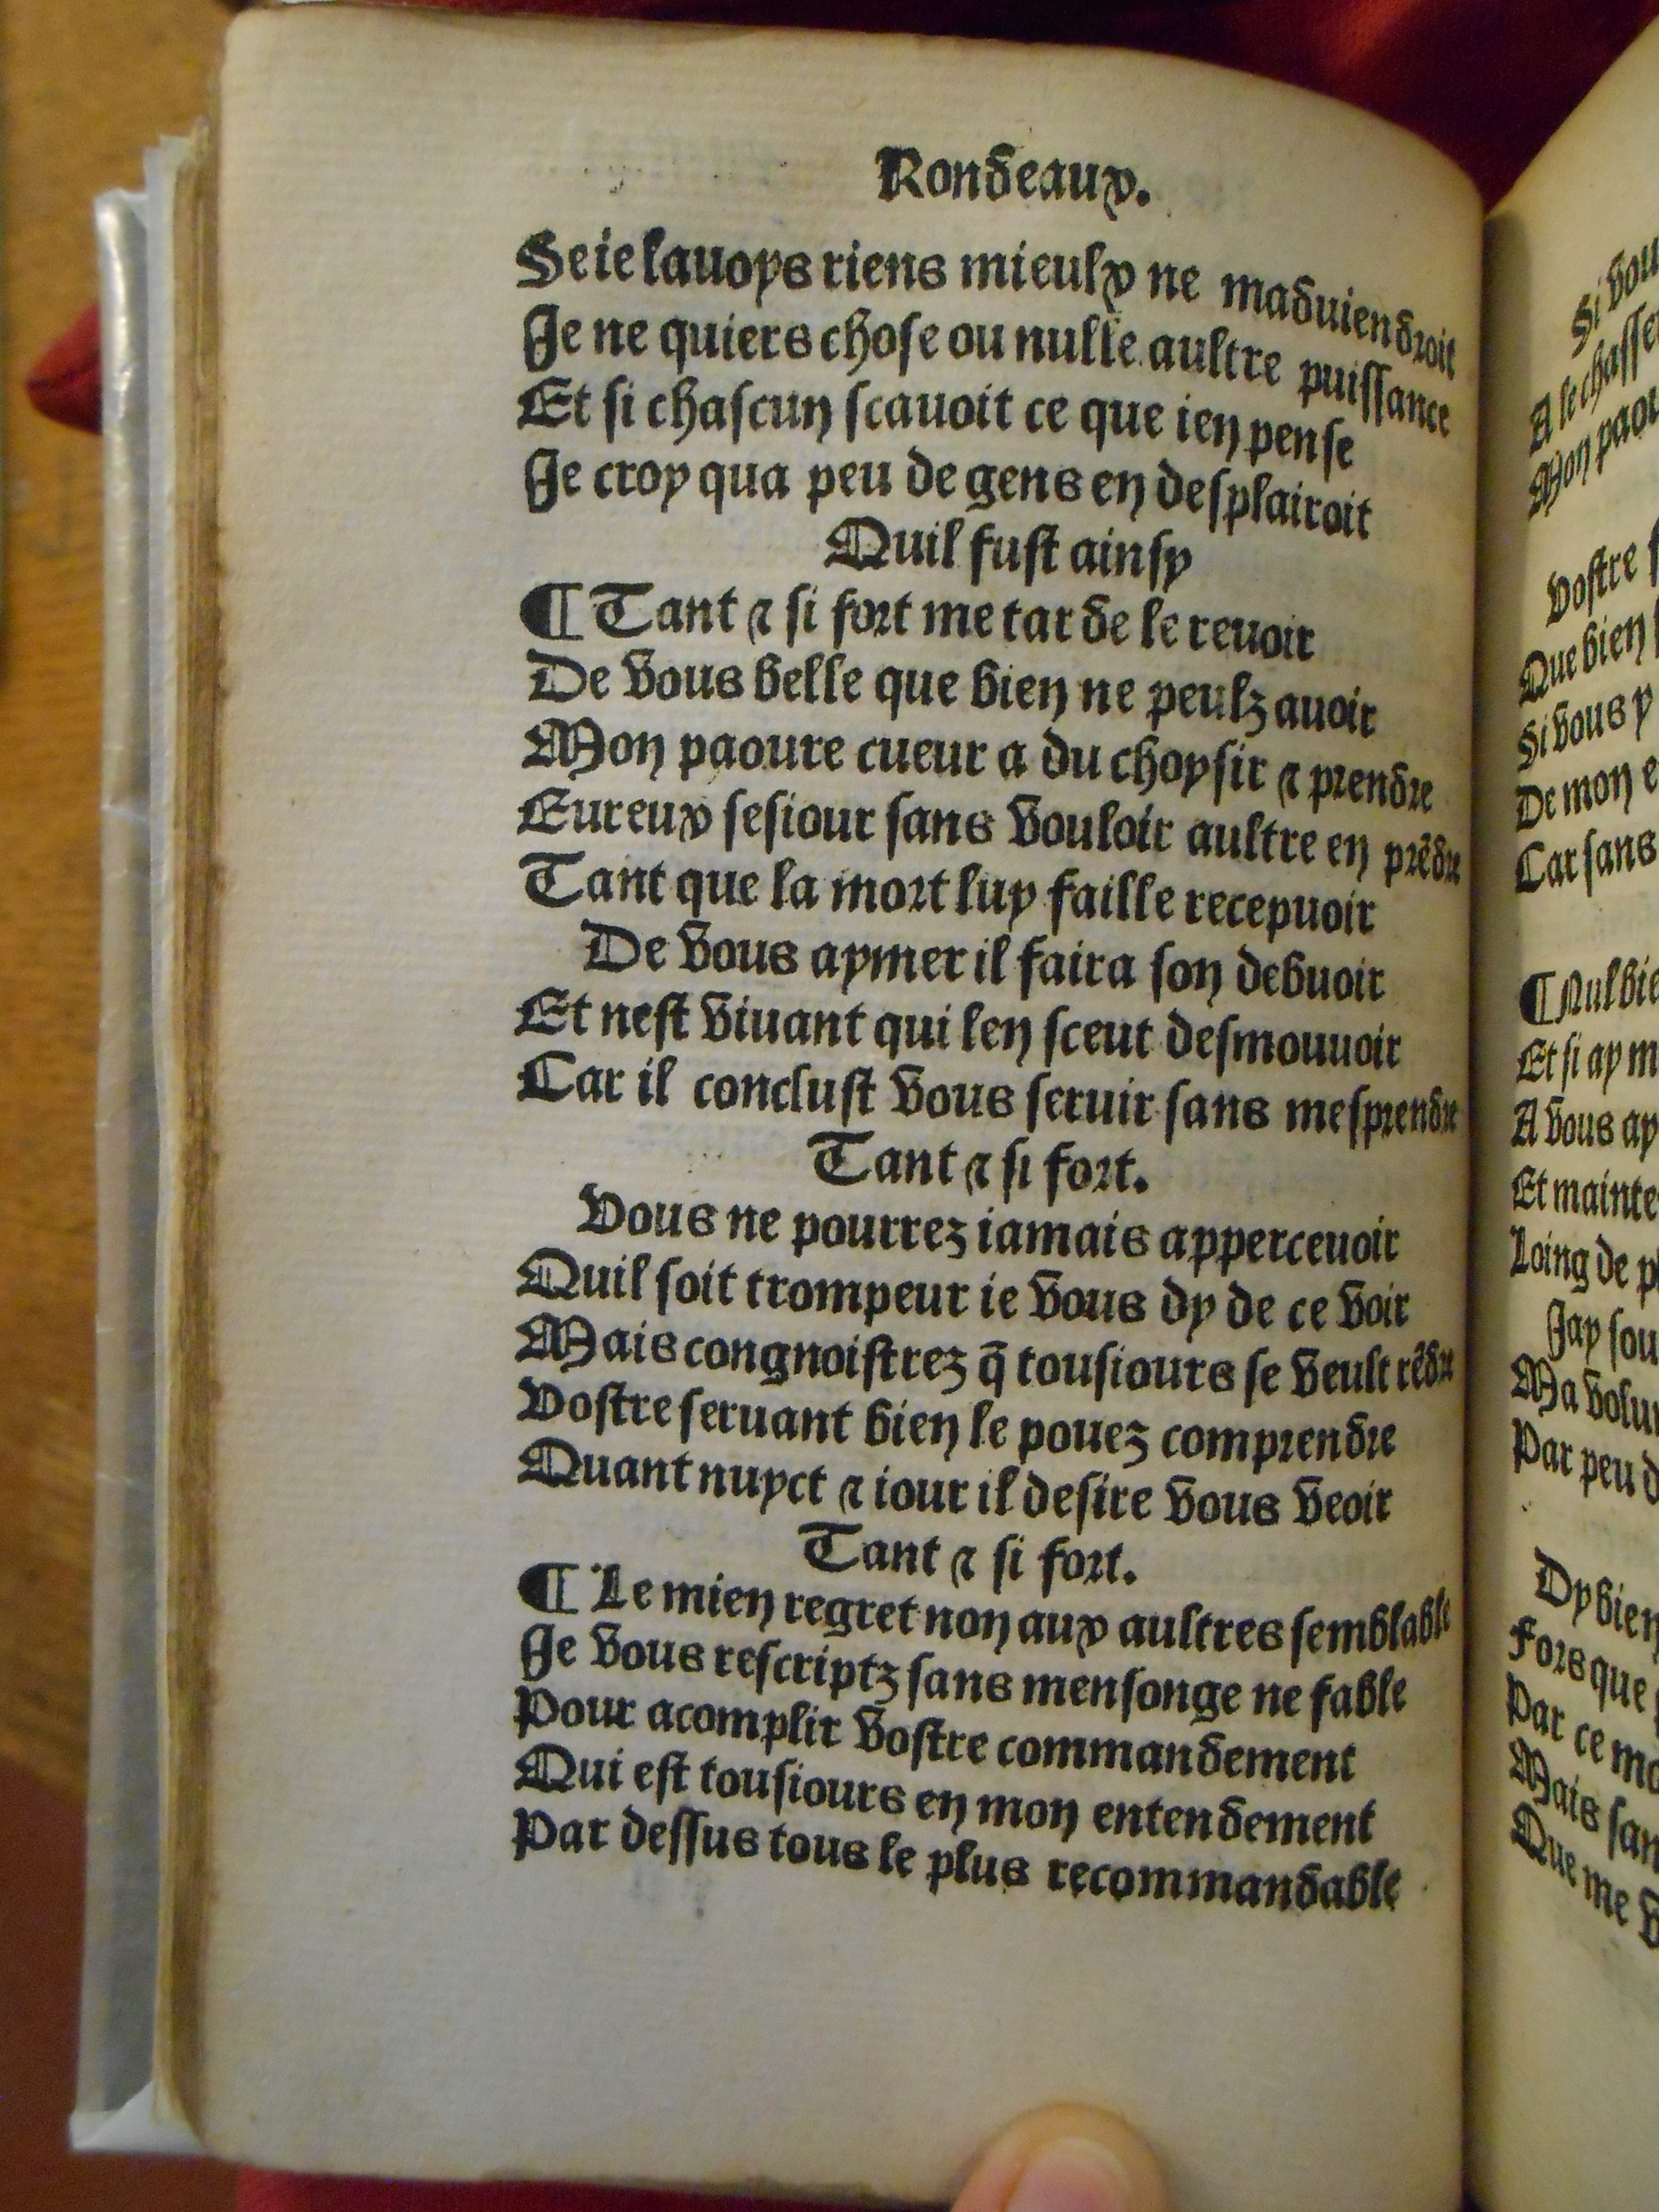 Rondeaux.
Se ie lauoys riens mieulx ne maduiendroit
Je ne quiers chose ou nulle aultre puissance
Et si chascun scauoit ce que ien pense
Je croy qua peu de gens en desplairoit
Quil fust ainsy
¶ Tant ⁊ si fort me tarde le reuoir
De vous belle que bien ne peulz auoir
Mon paoure cueur a du choysir ⁊ prendre
Eureux sesiour sans vouloir aultre en prēdre
Tant que la mort luy faille recepuoir
De vous aymer il faira son debuoir
Et nest viuant qui len sceut desmouuoir
Car il conclust vous seruir sans mesprendre
Tant ⁊ si fort.
Vous ne pourrez iamais apperceuoir
Quil soit trompeur ie vous dy de ce voir
Mais congnoistrez q̄ tousiours se veult rēdre
Vostre seruant bien le pouez comprendre
Quant nuyct ⁊ iour il desire vous veoir
Tant ⁊ si fort.
¶ Le mien regret non aux aultres semblable
Je vous rescriptz sans mensonge ne fable
Pour acomplir vostre commandement
Qui est tousiours en mon entendement
Par dessus tous le plus recommandable
Si
A le
Mon
Vostre
Que bien
Si vous y
De mon
Car sans
¶ Nul
Et si ay
A vous
Et
Loing de
Jay
Ma
Par peu
Dy bien
Fors que
Par ce
Mais
Que me